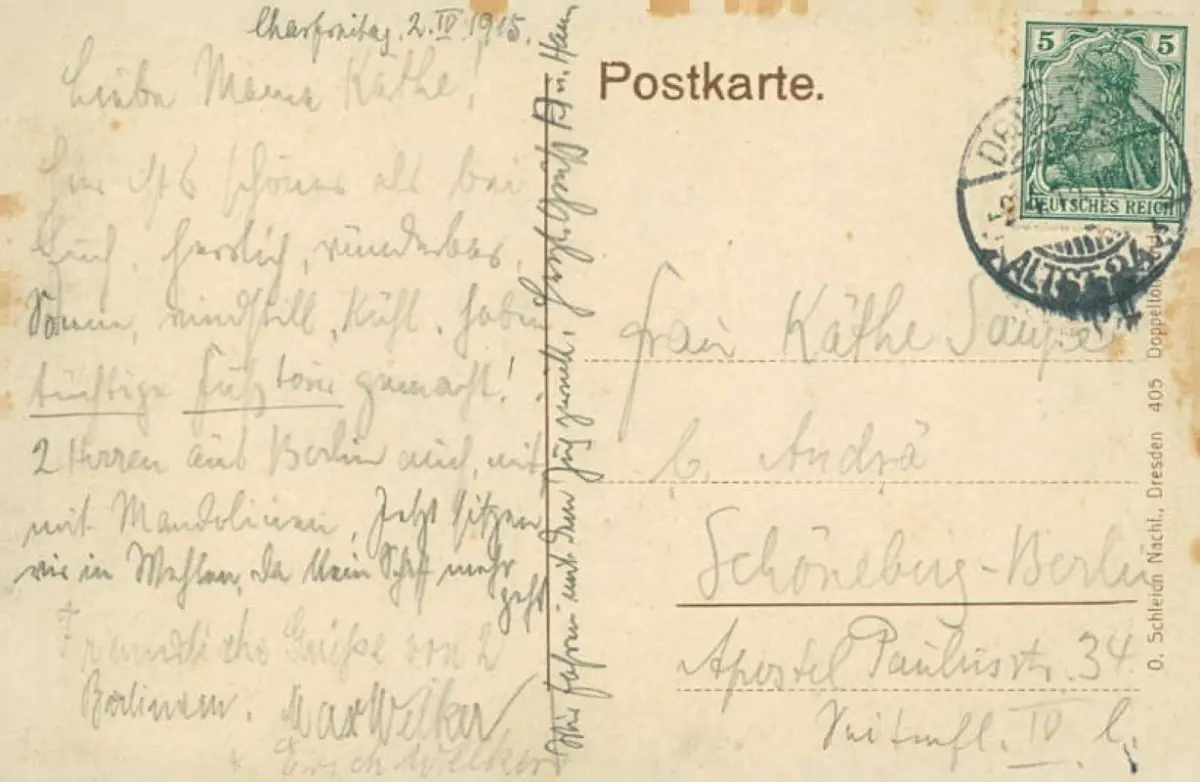 Charfreitag, 2. IV 1915.
Liebe Mama Käthe!
Hier ists schöner als bei
Euch. Herrlich, wunderbar,
Sonne, windstill, kühl, haben
tüchtige Fußtour gemacht!
2 Herren aus Berlin auch mit
mit Mandolinen. Jetzt sitzen
wir in Wehlen, da kein Schiff mehr
geht
Freundliche Grüße von 2
Berlinern. Max Welker
Erich Welker
Wir fahren mit dem Zug zurück. Herzl. Grüße
Postkarte.
5 5
DEUTSCHES REICH
ALTST. 24
Frau Käthe
b. Andrä
Schöneberg-Berlin
Apostel Paulusstr. 34
IV l.
O. Schleich Nachf., Dresden 405